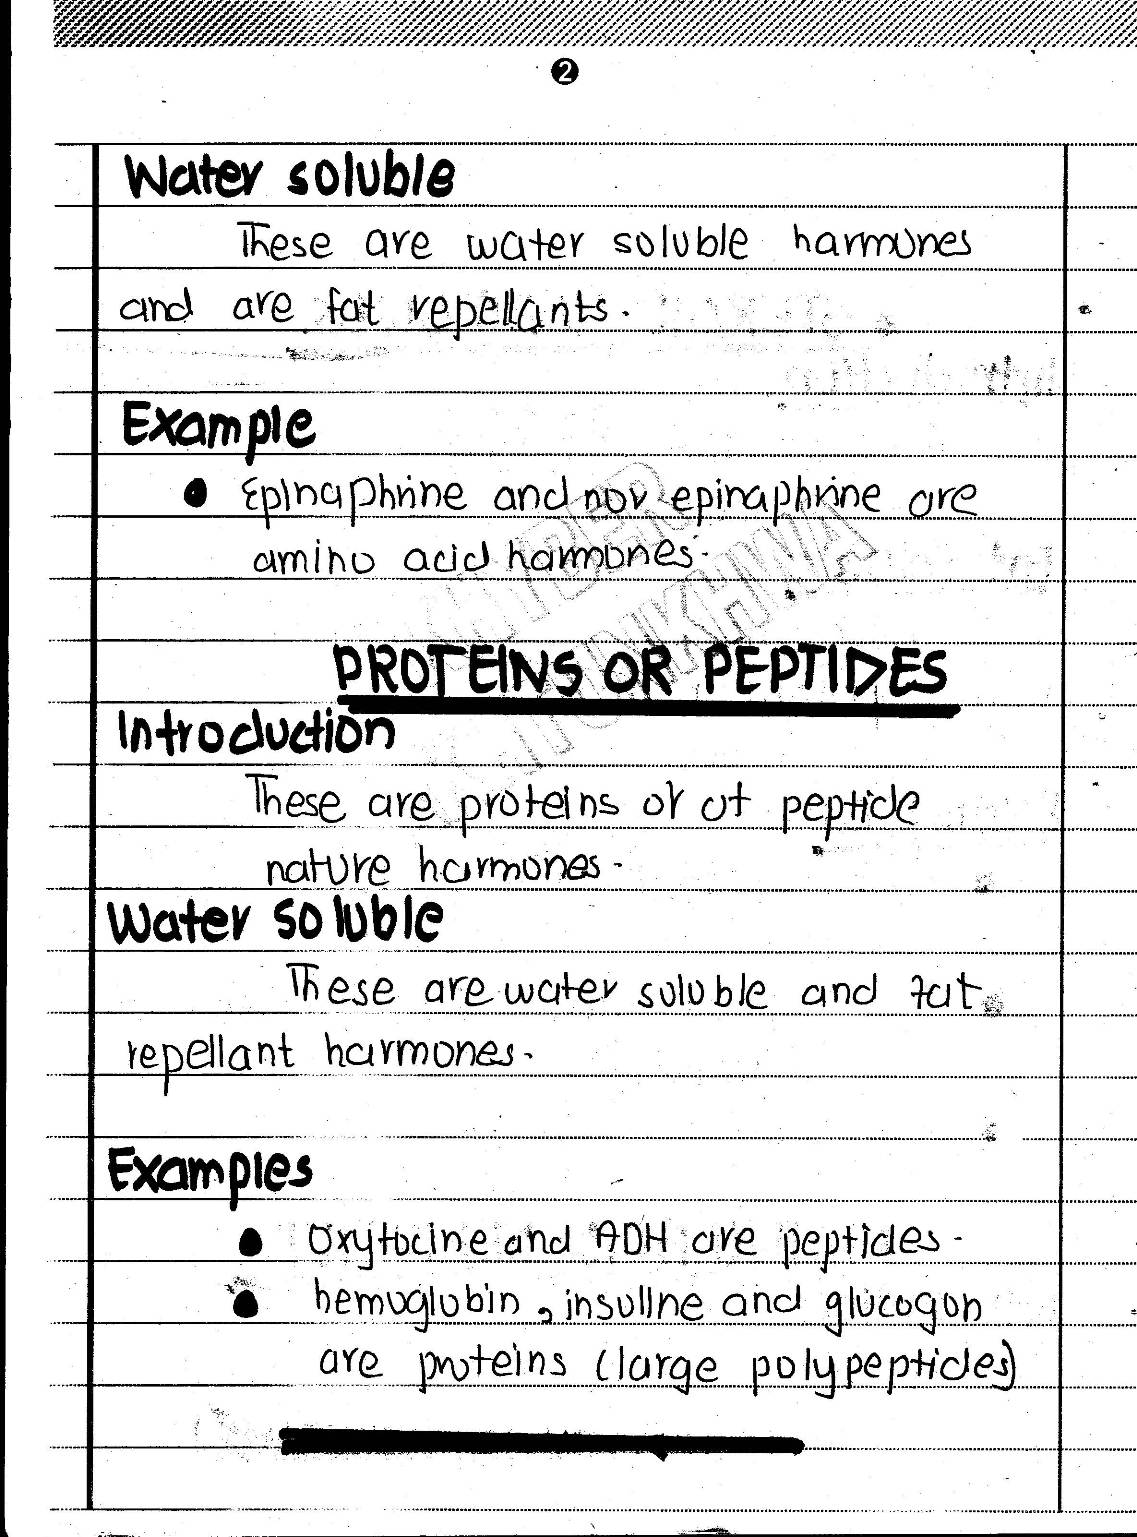 2
Water soluble
These are water soluble harmones
and are fat repellants.
Example
Epinaphrine and nor epinaphrine are
amino acid harmones.
PROTEINS OR PEPTIDES
Introduction
These are proteins or of peptide
nature harmones.
Water soluble
These are water soluble and fat
repellant harmones.
Examples
Oxytocine and ADH are peptides.
hemoglobin, insuline and glucogon
are proteins (large polypeptides)